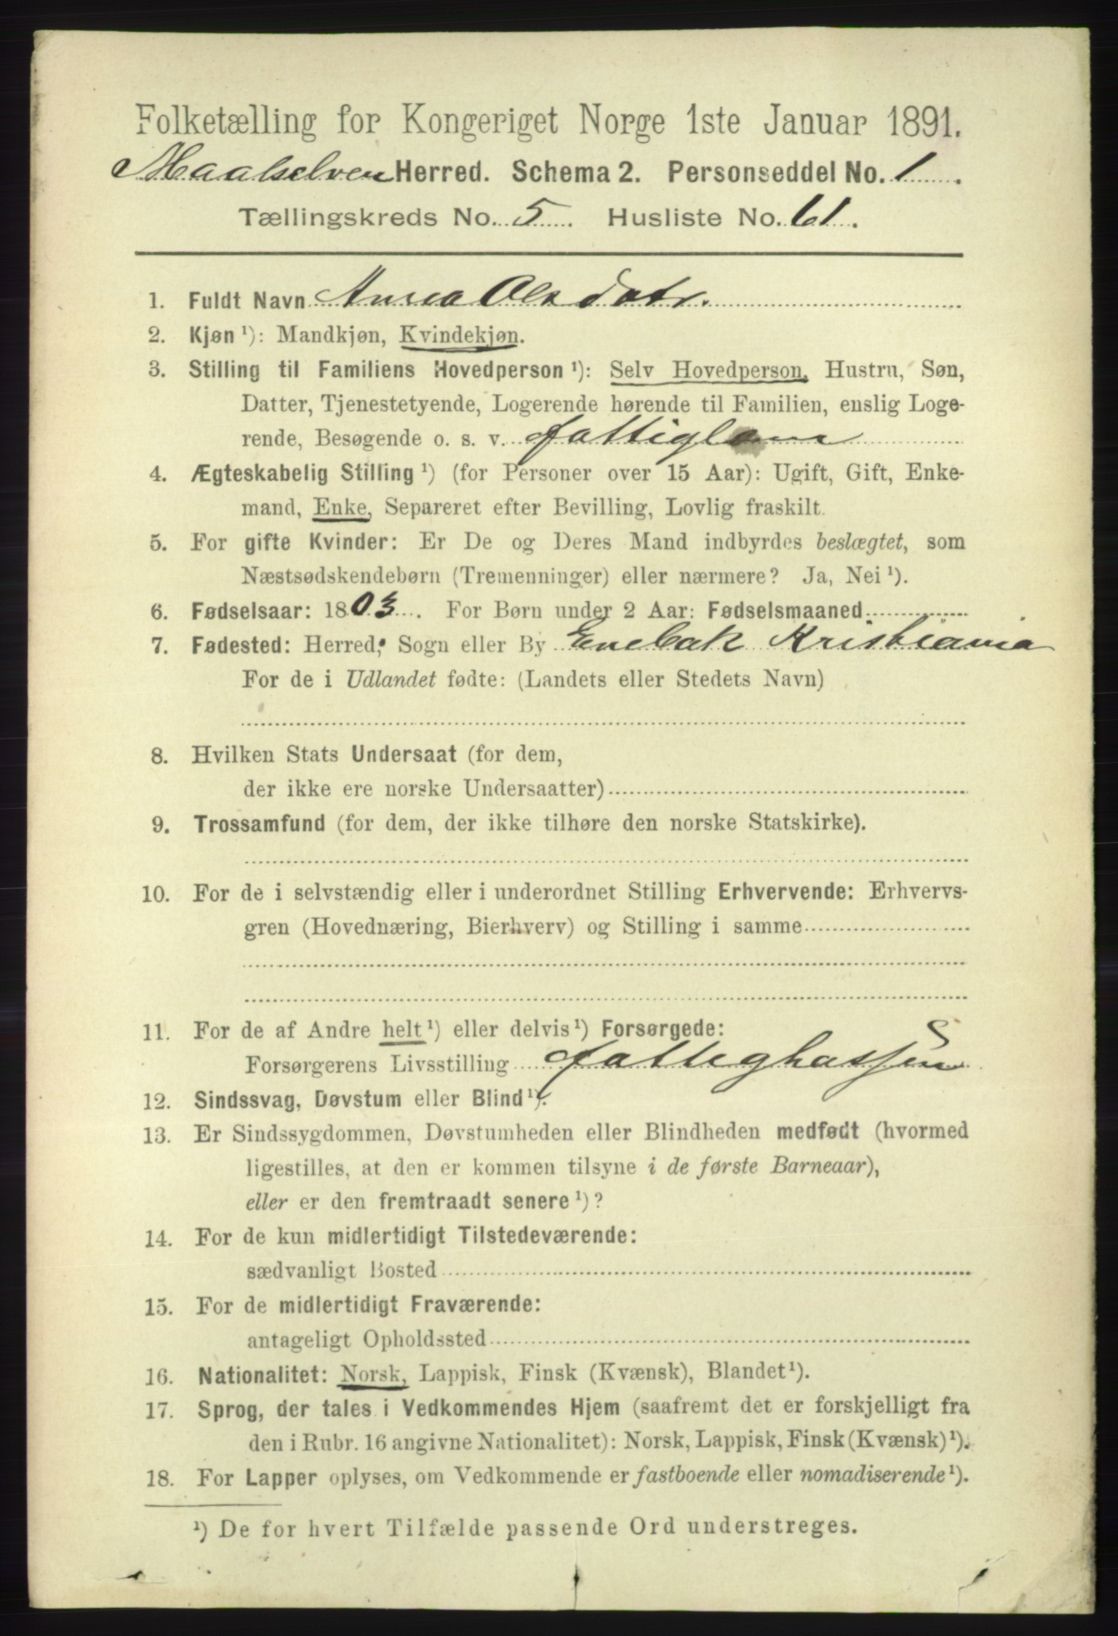 Folketælling for Kongeriget Norge 1ste Januar 1891.
Maalselven Herred. Schema 2. Personseddel No. 1.
Tællingskreds No. 5. Husliste No. 61.
1. Fuldt Navn Anna Olsdatr.
2. Kjøn ¹): Mandkjøn, Kvindekjøn.
3. Stilling til Familiens Hovedperson ¹): Selv Hovedperson, Hustru, Søn,
Datter, Tjenestetyende, Logerende hørende til Familien, enslig Loge-
rende, Besøgende o. s. v. fattiglem
4. Ægteskabelig Stilling ¹) (for Personer over 15 Aar): Ugift, Gift, Enke-
mand, Enke, Separeret efter Bevilling, Lovlig fraskilt.
5. For gifte Kvinder: Er De og Deres Mand indbyrdes beslægtet, som
Næstsødskendebørn (Tremenninger) eller nærmere? Ja, Nei ¹).
6. Fødselsaar: 1803. For Børn under 2 Aar: Fødselsmaaned
7. Fødested: Herred, Sogn eller By Enebak Kristiania
For de i Udlandet fødte: (Landets eller Stedets Navn)
8. Hvilken Stats Undersaat (for dem,
der ikke ere norske Undersaatter)
9. Trossamfund (for dem, der ikke tilhøre den norske Statskirke).
10. For de i selvstændig eller i underordnet Stilling Erhvervende: Erhvervs-
gren (Hovednæring, Bierhverv) og Stilling i samme
11. For de af Andre helt ¹) eller delvis ¹) Forsørgede:
Forsørgerens Livsstilling fattighassen
12. Sindssvag, Døvstum eller Blind ¹).
13. Er Sindssygdommen, Døvstumheden eller Blindheden medfødt (hvormed
ligestilles, at den er kommen tilsyne i de første Barneaar),
eller er den fremtraadt senere ¹)?
14. For de kun midlertidigt Tilstedeværende:
sædvanligt Bosted
15. For de midlertidigt Fraværende:
antageligt Opholdssted
16. Nationalitet: Norsk, Lappisk, Finsk (Kvænsk), Blandet ¹).
17. Sprog, der tales i Vedkommendes Hjem (saafremt det er forskjelligt fra
den i Rubr. 16 angivne Nationalitet): Norsk, Lappisk, Finsk (Kvænsk) ¹).
18. For Lapper oplyses, om Vedkommende er fastboende eller nomadiserende ¹).
¹) De for hvert Tilfælde passende Ord understreges.